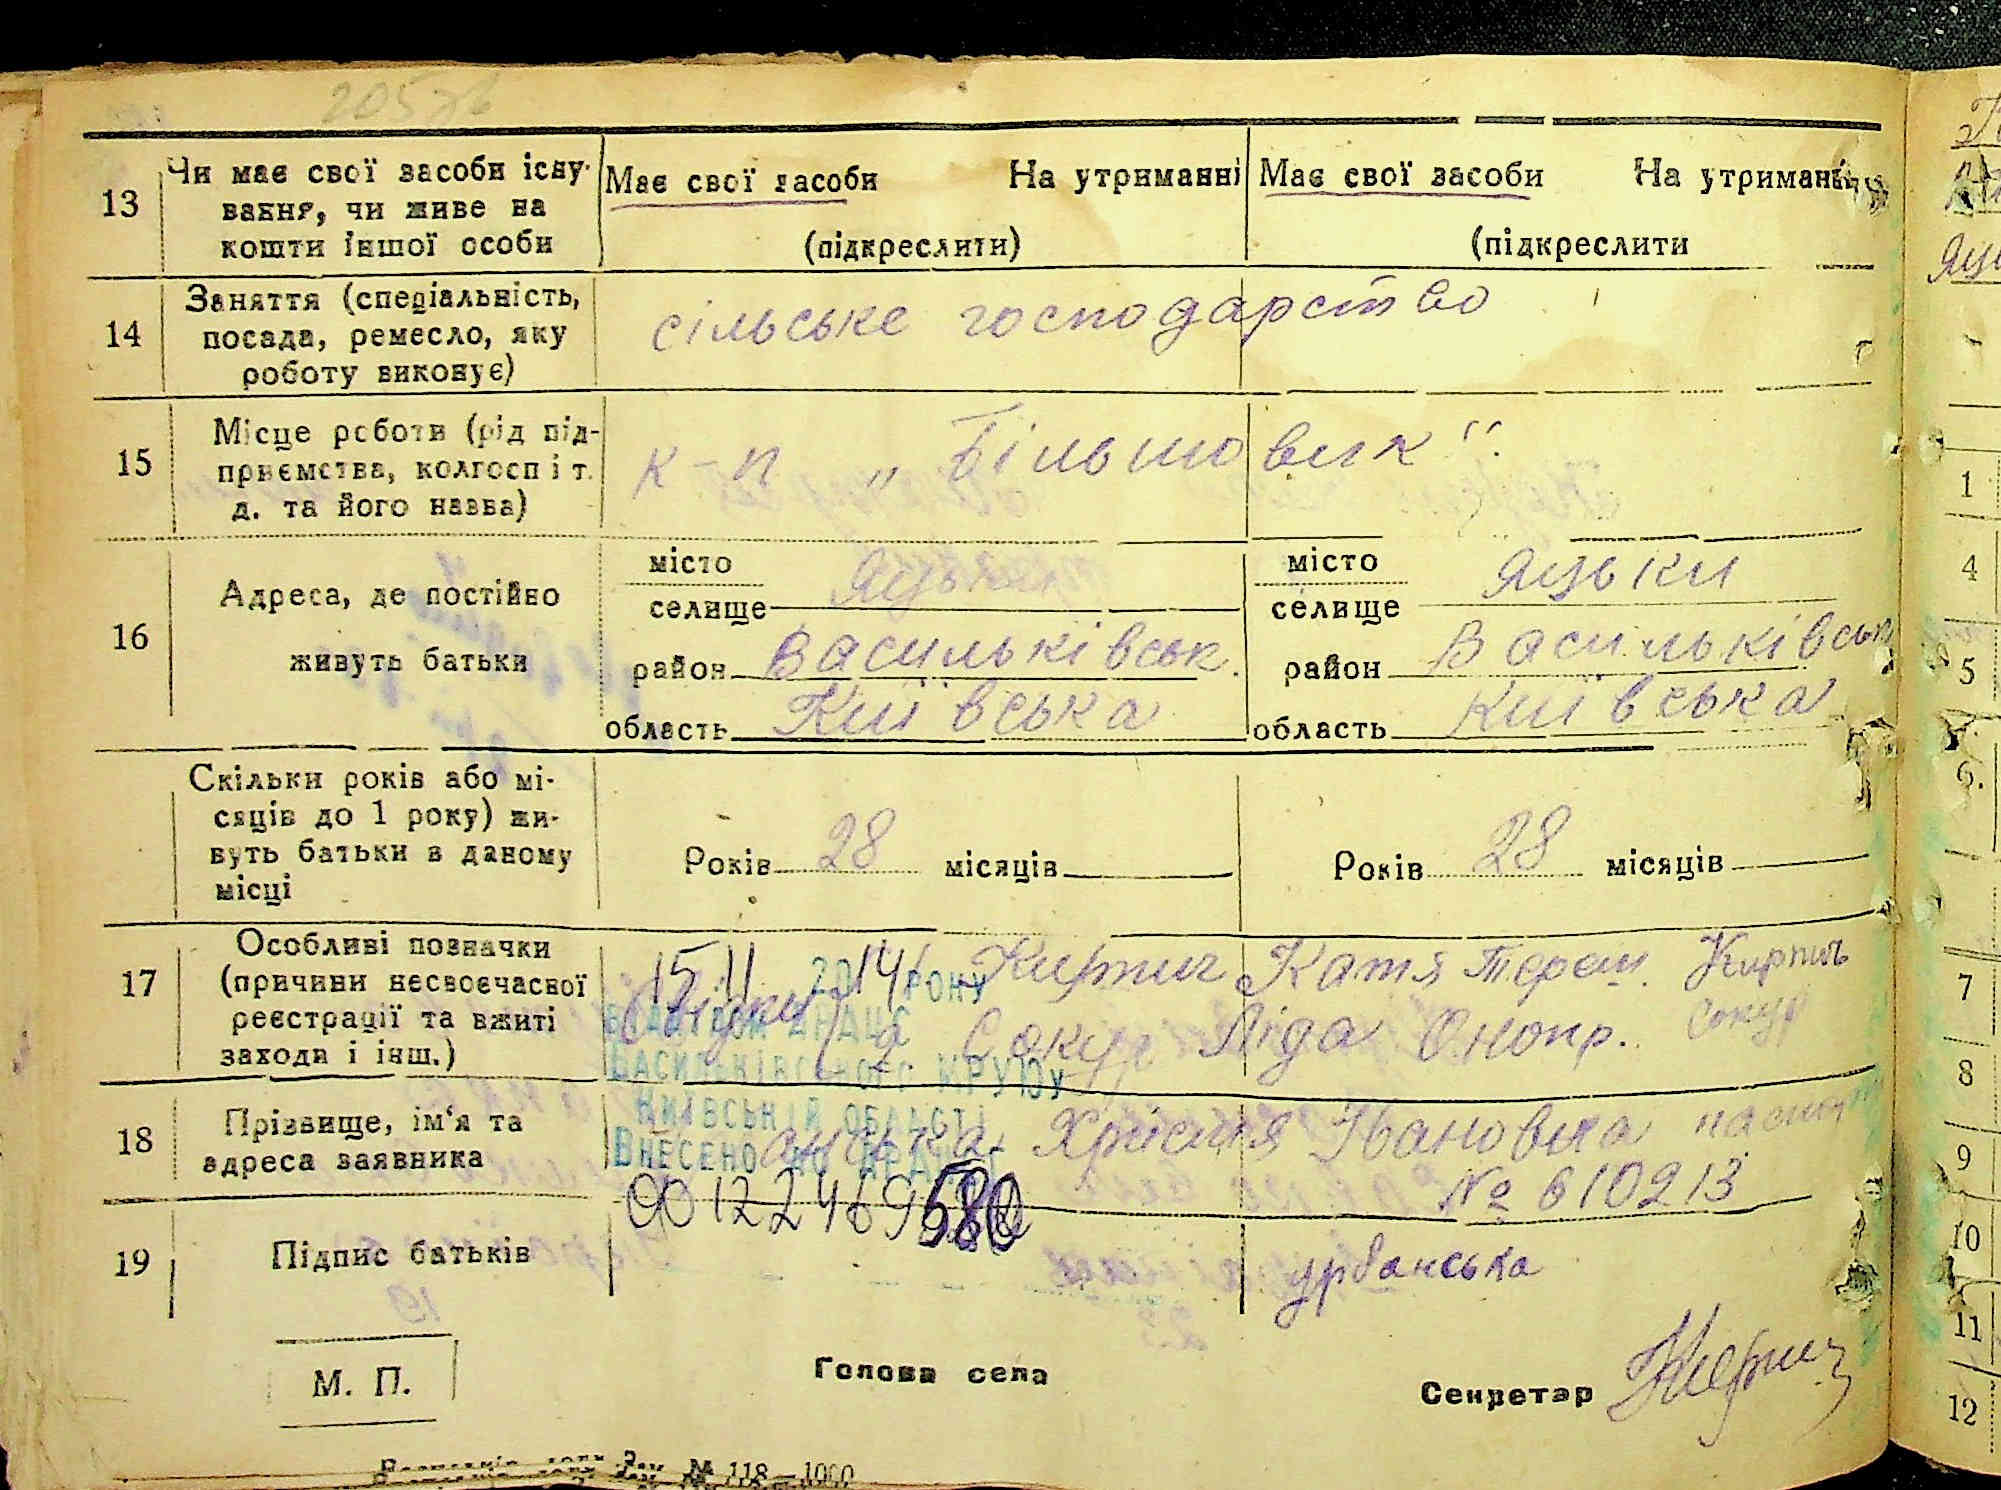 205зв
13
Чи має свої засоби існу-
вання, чи живе на
кошти іншої особи
Має свої засоби На утриманні
(підкреслити)
Має свої засоби На утриманні
(підкреслити
14
Заняття (спеціальність,
посада, ремесло, яку
роботу виконує)
сільське господарство
15
Місце роботи (рід під-
приємства, колгосп і т.
д. та його назва)
к-п „Більшовик"
16
Адреса, де постійно
живуть батьки
місто
селище Яцьки
район Васильківськ.
область Київська
місто
селище Яцьки
район Васильківськ
область Київська
Скільки років або мі-
сяців до 1 року) жи-
вуть батьки в даному
місці
Років 28 місяців
Років 28 місяців
17
Особливі позначки
(причини несвоєчасної
реєстрації та вжиті
заходи і інш.)
15 11 2014 РОКУ
ВІДДІЛОМ ДРАЦС
ВАСИЛЬКІВСЬКОГО МРУЮ У
КИЇВСЬКІЙ ОБЛАСТІ
ВНЕСЕНО ДО ДРАЦСГ
00122469580
Свідки Кирпич Катя Тереш. Кирпич
Сокур Ліда Онопр. Сокур
18
Прізвище, ім'я та
адреса заявника
Християя Івановна паспорт
№ 610213
19
Підпис батьків
урбанська
М. П.
Голова села
Секретар Кирпич
№ 118—1000
1
4
5
6.
7
8
9
10
11
12